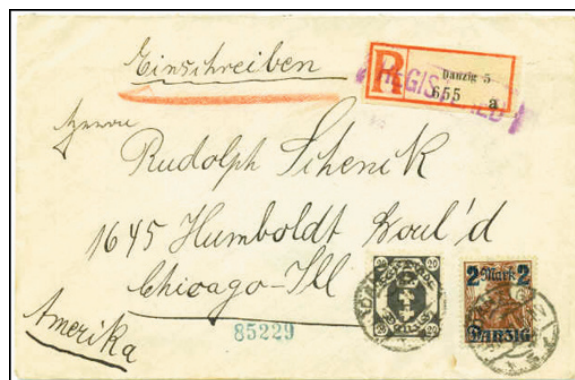 Einschreiben
R
Danzig 5
655 a
REGISTERED
Herrn
Rudolph Schenk
1645 Humboldt Boul'd
Chicago-Ill
Amerika
85229
20 20
20 20
2 Mark 2
DANZIG